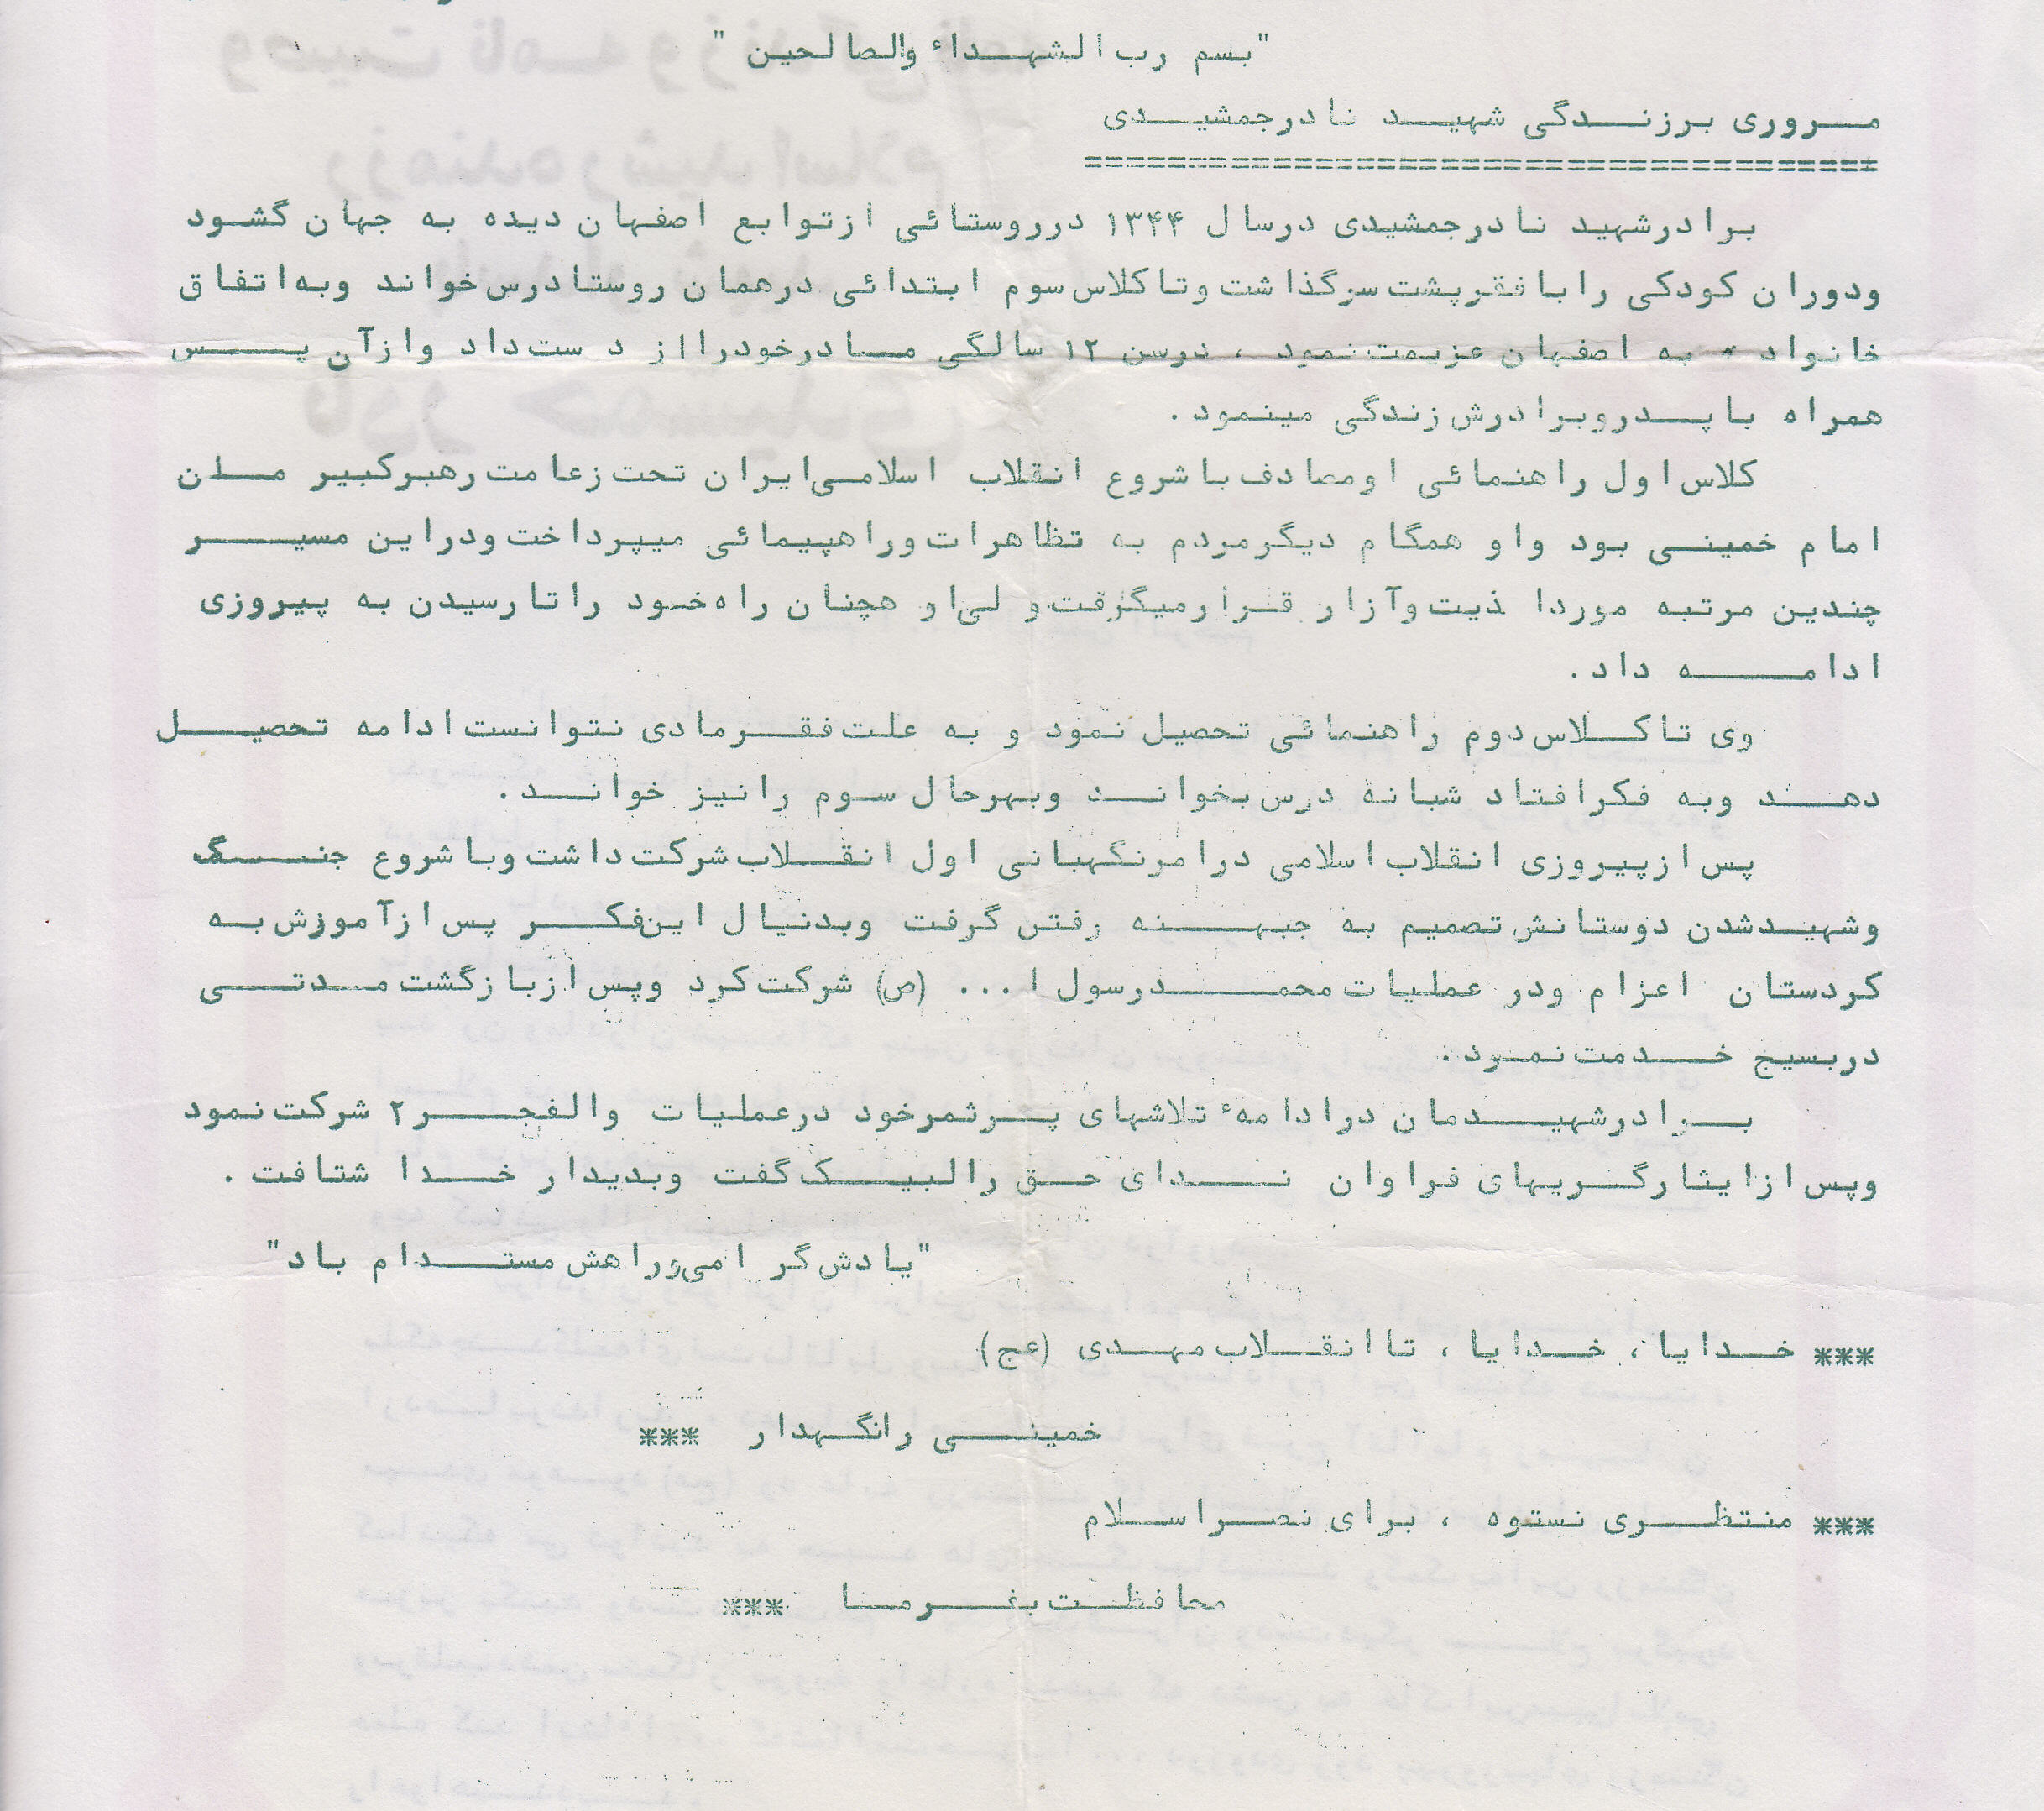 "بسم رب الشهداء والصالحین"
مروری برزندگی شهید نادرجمشیدی
برادرشهید نادرجمشیدی درسال ۱۳۴۴ درروستائی ازتوابع اصفهان دیده به جهان گشود
ودوران کودکی رابافقرپشت سرگذاشت وتاکلاس سوم ابتدائی درهمان روستادرس خواند وبه اتفاق
خانواده به اصفهان عزیمت نمود ، درسن ۱۲ سالگی مادرخودرااز دست داد وازآن پس
همراه باپدروبرادرش زندگی مینمود .
کلاس اول راهنمائی اومصادف باشروع انقلاب اسلامی ایران تحت زعامت رهبرکبیر مان
امام خمینی بود واو همگام دیگرمردم به تظاهرات وراهپیمائی میپرداخت ودراین مسیر
چندین مرتبه مورداذیت وآزار قرارمیگرفت و لی او هچنان راه خود راتارسیدن به پیروزی
ادامه داد.
وی تاکلاس دوم راهنمائی تحصیل نمود و به علت فقرمادی نتوانست ادامه تحصیل
دهند وبه فکرافتاد شبانه درس بخواند وبهرحال سوم رانیز خواند.
پس ازپیروزی انقلاب اسلامی درامرنگهبانی اول انقلاب شرکت داشت وباشروع جنگ
وشهیدشدن دوستانش تصمیم به جبهه رفتن گرفت وبدنبال این فکر پس ازآموزش به
کردستان اعزام ودر عملیات محمدرسول ا... (ص) شرکت کرد وپس ازبازگشت مدتی
دربسیج خدمت نمود.
برادرشهیدمان درادامهٔ تلاشهای پرثمرخود درعملیات والفجر۲ شرکت نمود
وپس ازایثارگریهای فراوان ندای حق رالبیک گفت وبدیدار خدا شتافت .
"یادش گرامی وراهش مستدام باد"
*** خدایا ، خدایا ، تاانقلاب مهدی (عج)
خمینی رانگهدار ***
*** منتظری نستوه ، برای نصراسلام
محافظت بغرما ***